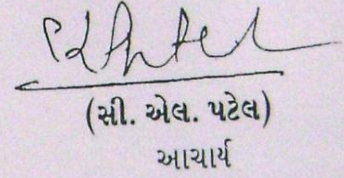 (સી. એલ. પટેલ)
આચાર્ય